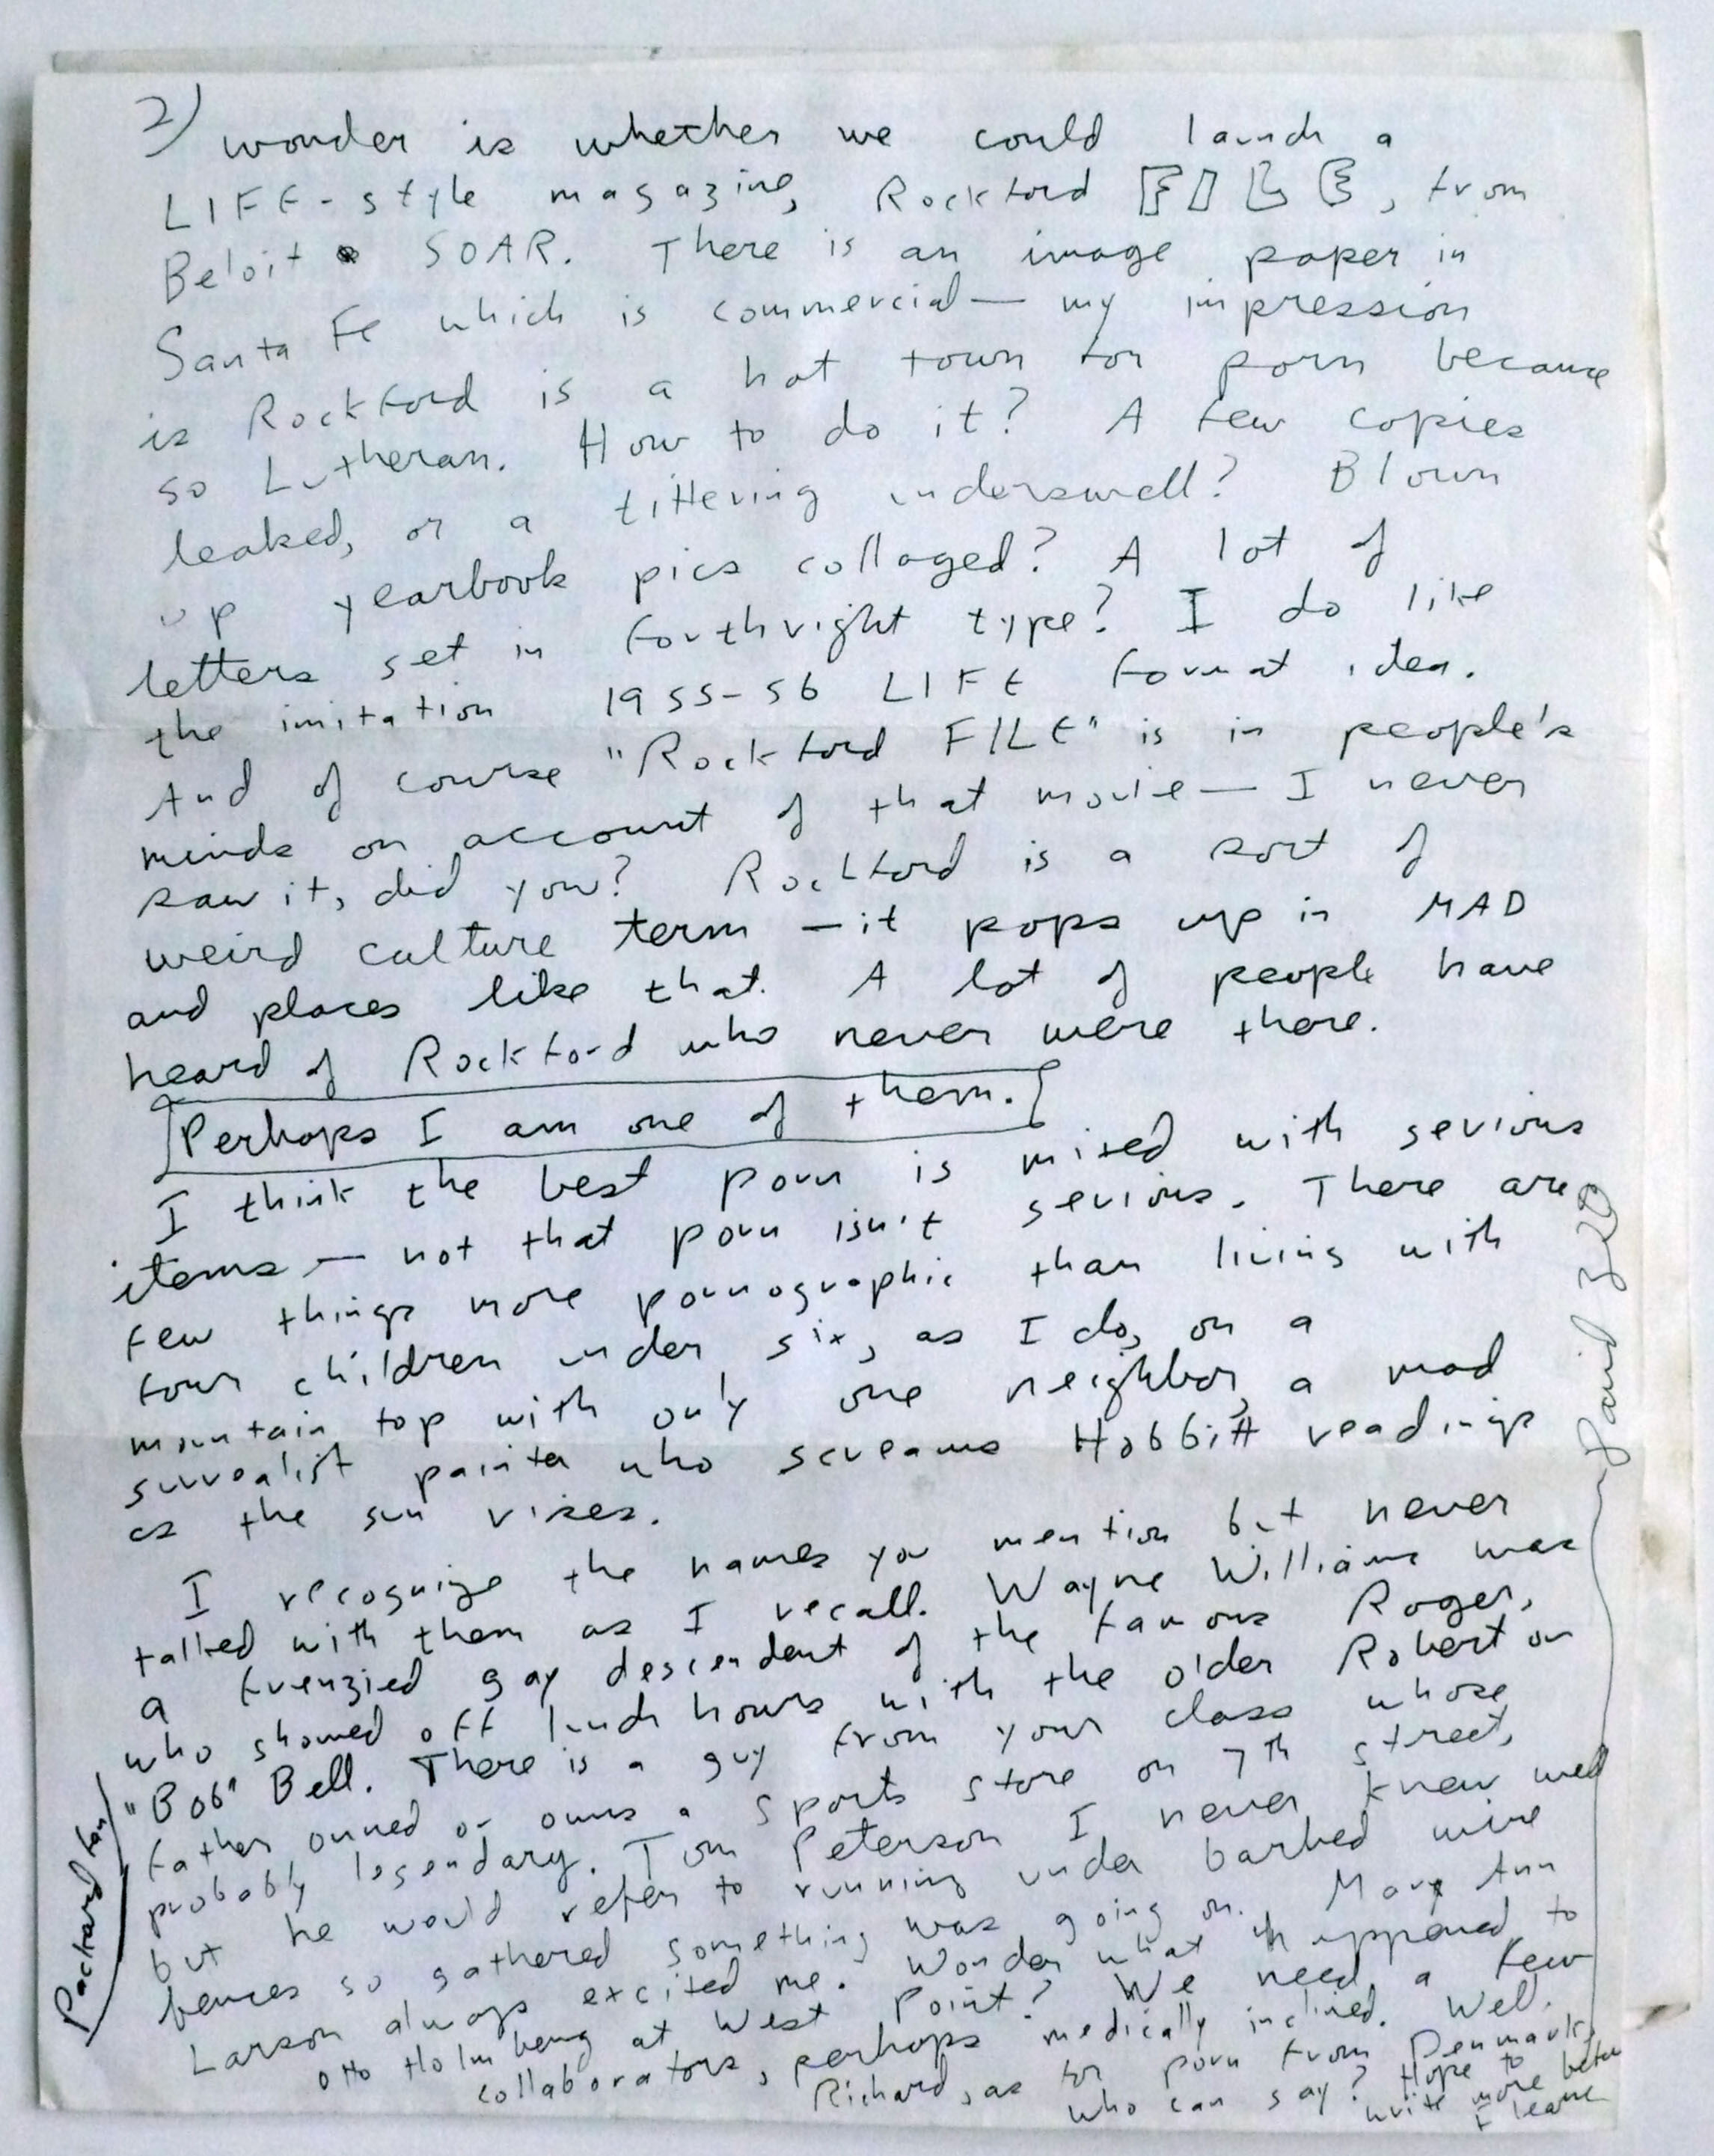 2)
wonder is whether we could launch a
LIFE-style magazine, Rockford FILE, from
Beloit SOAR. There is an image paper in
Santa Fe which is commercial — my impression
is Rockford is a hot town for porn because
so Lutheran. How to do it? A few copies
leaked, or a tittering underswell? Blown
up yearbook pics collaged? A lot of
letters set in forthright type? I do like
the imitation 1955-56 LIFE format idea.
And of course "Rockford FILE" is in people's
minds on account of that movie — I never
saw it, did you? Rockford is a sort of
weird culture term — it pops up in MAD
and places like that. A lot of people have
heard of Rockford who never were there.
Perhaps I am one of them.
I think the best porn is mixed with serious
items — not that porn isn't serious. There are
few things more pornographic than living with
four children under six, as I do, on a
mountain top with only one neighbor, a mad
surrealist painter who screams Hobbitt readings
as the sun rises.
I recognize the names you mention but never
talked with them as I recall. Wayne Williams was
a frenzied gay descendent of the famous Roger,
who showed off lunch hours with the older Robert or
"Bob" Bell. There is a guy from your class whose
father owned or owns a sports store on 7th street,
probably legendary. Tom Peterson I never knew well
but he would refer to running under barbed wire
fences so gathered something was going on. Mary Ann
Larson always excited me. Wonder what happened to
Otto Holmberg at West Point? We need a few
collaborators, perhaps medically inclined. Well,
Richard, as for porn from Denmark,
who can say? Hope to
write more before
I leave
David
Packard fan